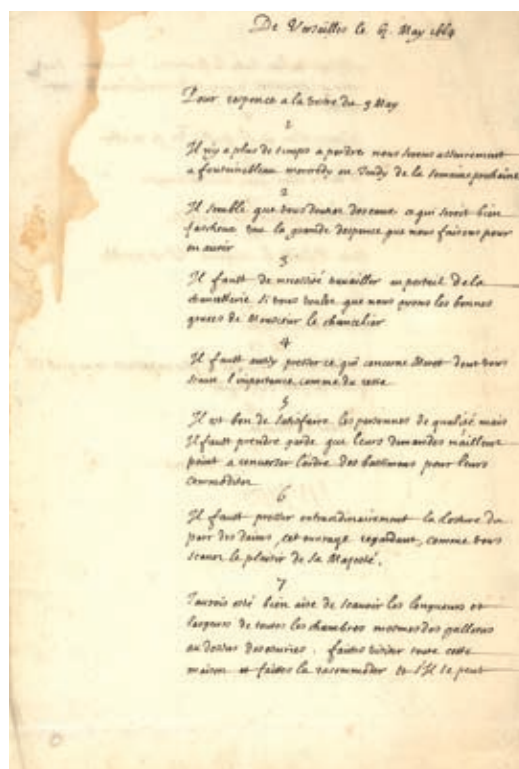 De Versailles le 6. May 1664
Pour responce a la vostre du 5 May
1
Il n'y a plus de temps a perdre nous serons asseurement
a fontainebleau mercredy ou Jeudy de la semaine prochaine
2
Il semble que vous doutez des eaux ce qui seroit bien
fascheux veu la grande despence que nous faisons pour
en auoir
3
Il fault de necessité travailler au portail de la
chancellerie si vous voulez que nous ayons les bonnes
graces de Monsieur le chancelier
4
Il fault aussy presser ce qui concerne Moret dont vous
scavez l'importance, comme du reste
5
Il est bon de satisfaire les personnes de qualité mais
Il fault prendre garde que leurs demandes n'aillent
point a renverser l'ordre des bastimens pour leurs
commoditez
6
Il fault presser extraordinairement la closture du
parc des daims, cet ouvrage regardant, comme vous
scavez le plaisir de sa Majesté.
7
J'aurois esté bien aise de scauoir les longueurs et
largeurs de toutes les chambres mesmes des galleries
au dessus des escuries. faites visiter toute cette
maison et faites la raccommoder et s'Il se peut